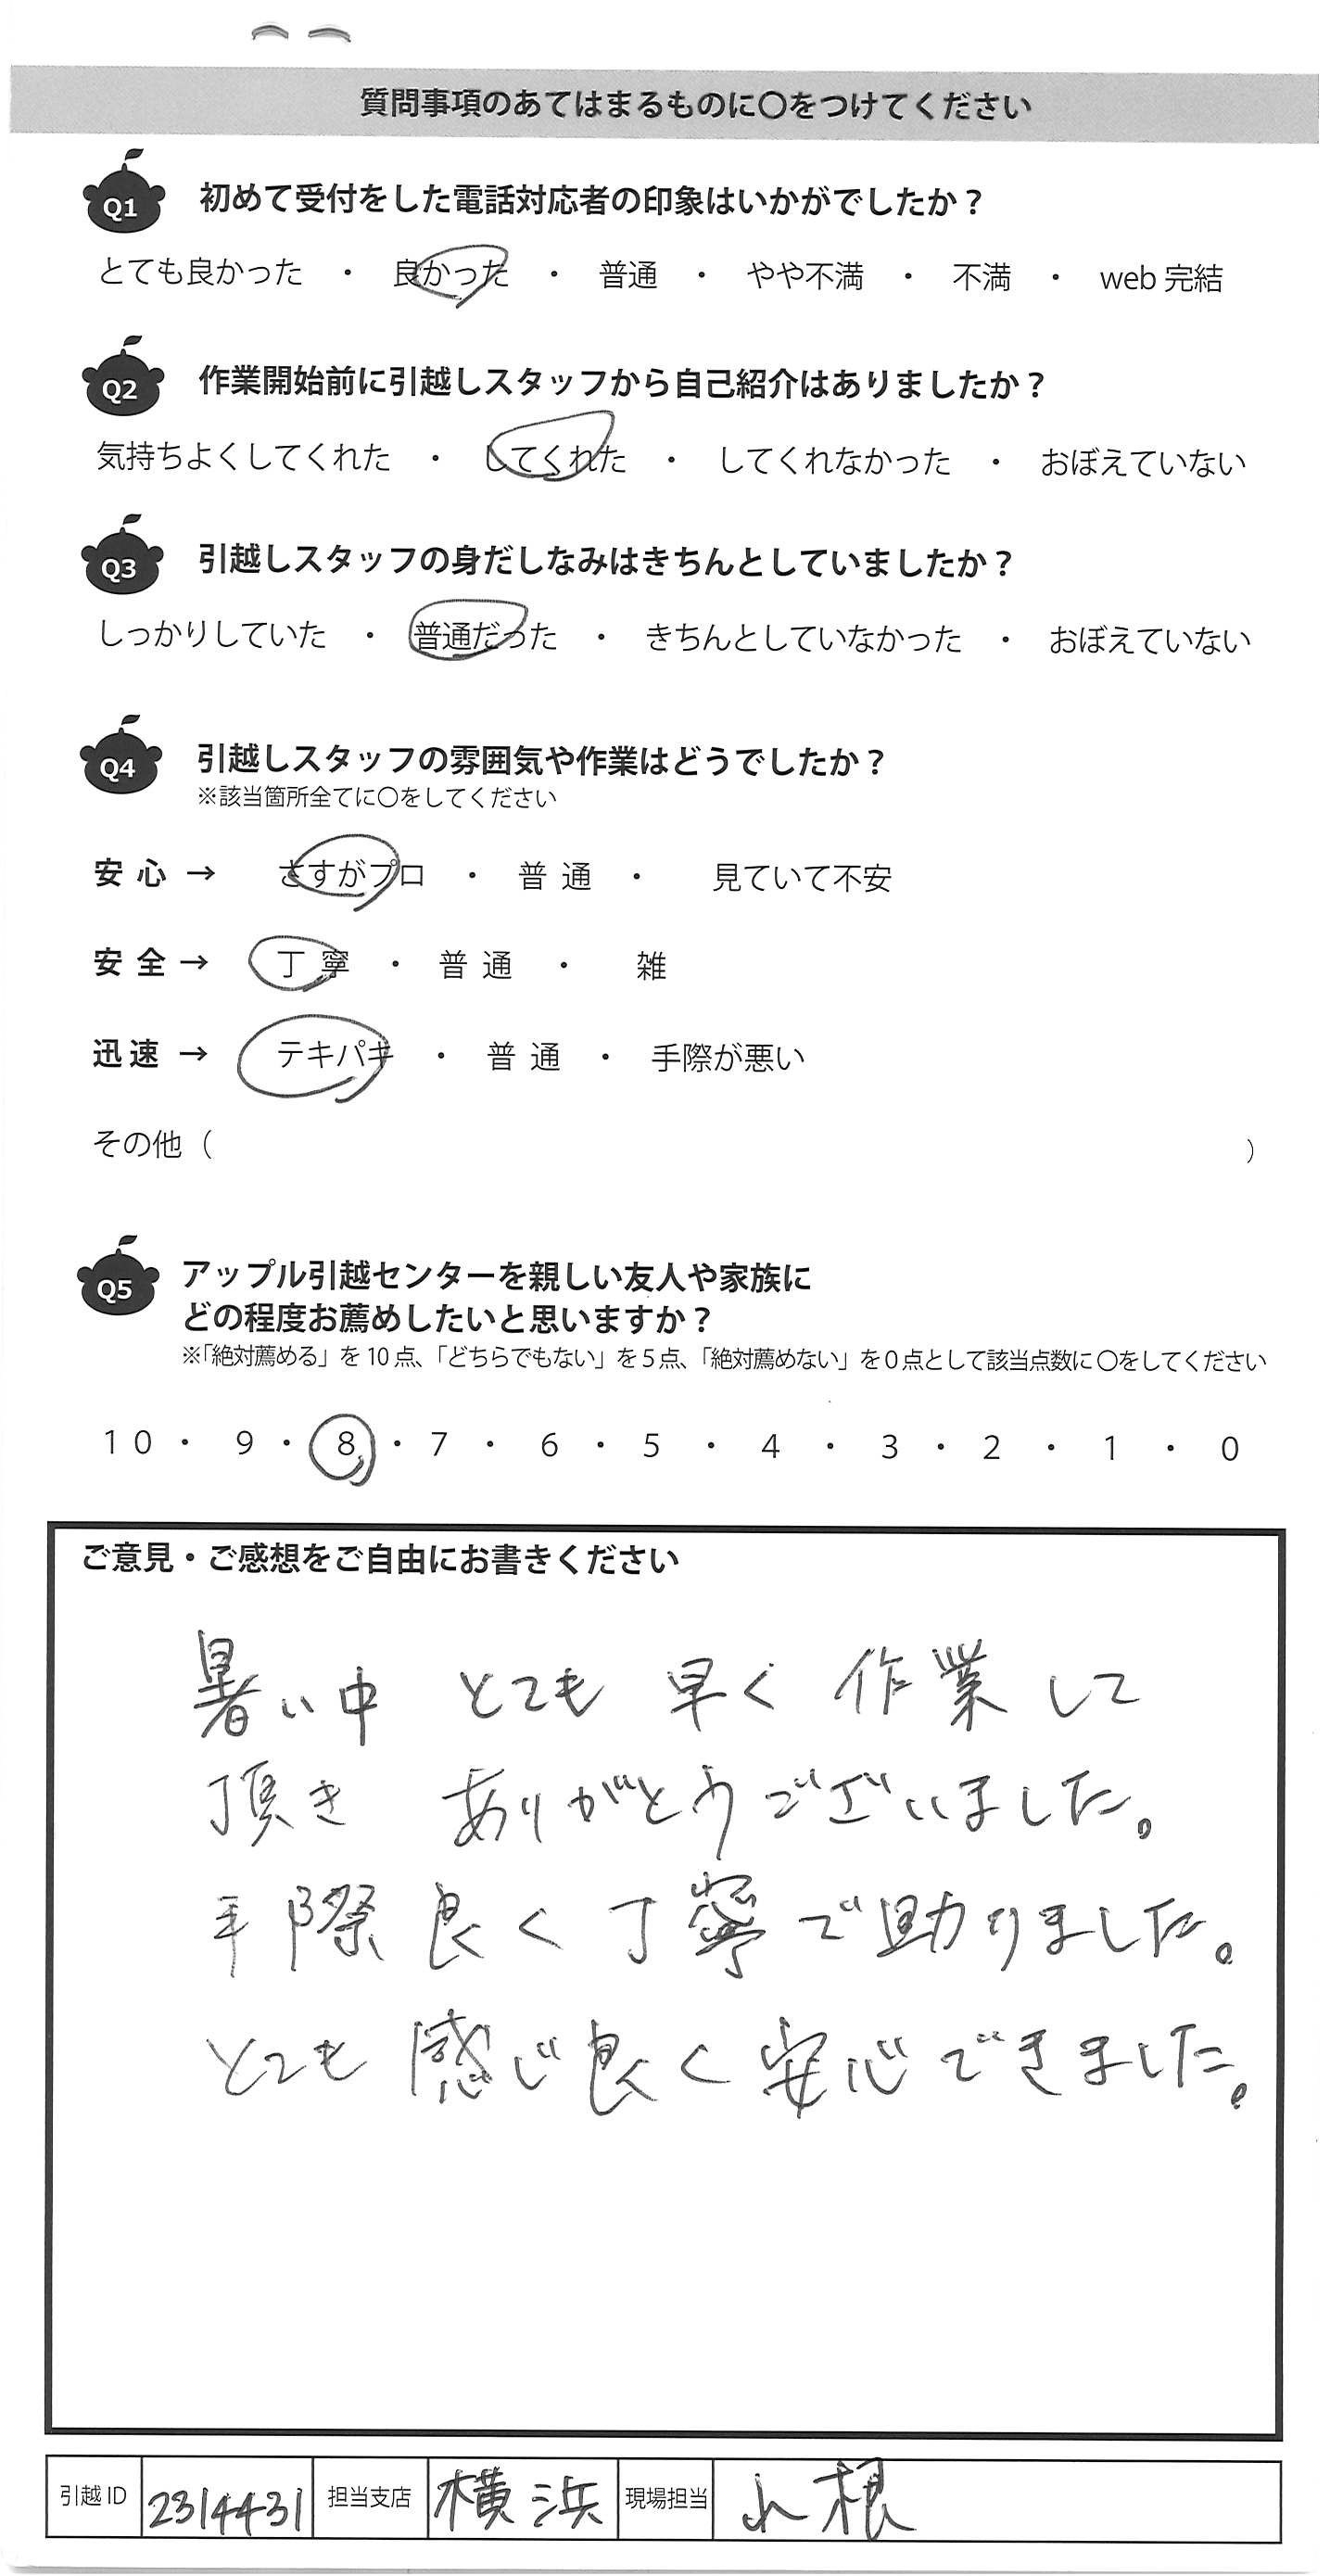 質問事項のあてはまるものに〇をつけてください
Q1 初めて受付をした電話対応者の印象はいかがでしたか？
とても良かった ・ 良かった ・ 普通 ・ やや不満 ・ 不満 ・ web 完結
Q2 作業開始前に引越しスタッフから自己紹介はありましたか？
気持ちよくしてくれた ・ してくれた ・ してくれなかった ・ おぼえていない
Q3 引越しスタッフの身だしなみはきちんとしていましたか？
しっかりしていた ・ 普通だった ・ きちんとしていなかった ・ おぼえていない
Q4 引越しスタッフの雰囲気や作業はどうでしたか？
※該当箇所全てに〇をしてください
安心 → さすがプロ ・ 普通 ・ 見ていて不安
安全 → 丁寧 ・ 普通 ・ 雑
迅速 → テキパキ ・ 普通 ・ 手際が悪い
その他（ ）
Q5 アップル引越センターを親しい友人や家族に
どの程度お薦めしたいと思いますか？
※「絶対薦める」を 10 点、「どちらでもない」を 5 点、「絶対薦めない」を 0 点として該当点数に 〇をしてください
10 ・ 9 ・ 8 ・ 7 ・ 6 ・ 5 ・ 4 ・ 3 ・ 2 ・ 1 ・ 0
ご意見・ご感想をご自由にお書きください
暑い中 とても 早く 作業して
頂き ありがとうございました。
手際良く丁寧で助りました。
とても感じ良く安心できました。
引越 ID 2314431 担当支店 横浜 現場担当 根